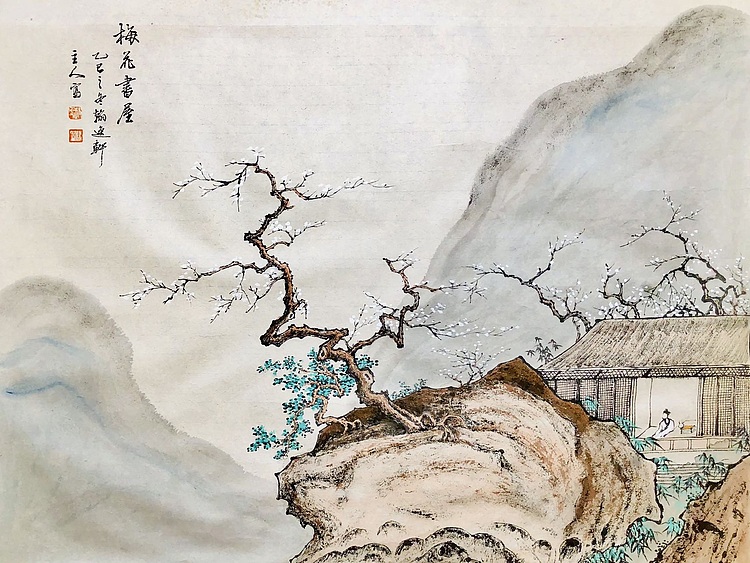 梅花書屋
乙巳之冬翰逸軒
主人寫